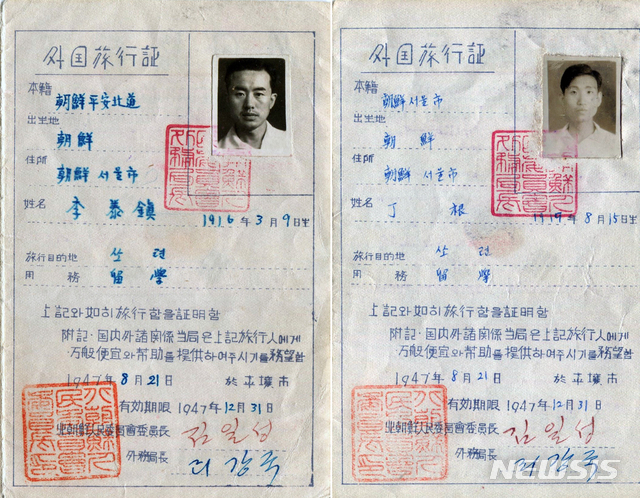 外国旅行証
本籍
朝鮮 平安北道
出生地
朝鮮
住所
朝鮮 서울市
姓名 李泰鎭
1916年 3月 9日生
旅行目的地 쏘련
用務 留學
上記와 如히 旅行함을 証明함
附記·国内外諸関係当局은 上記旅行人에게
万般便宜와 帮助를 提供하여주시기를 務望함
1947年 8月 21日 於平壤市
有効期限 1947年 12月 31日
北朝鮮人民委員會委員長 김일성
外務局長 리강국
外国旅行証
本籍
朝鮮 서울市
出生地
朝鮮
住所
朝鮮 서울市
姓名 丁 根
8月 15日生
旅行目的地 쏘련
用務 留學
上記와 如히 旅行함을 証明함
附記·国内外諸関係当局은 上記旅行人에게
万般便宜와 帮助를 提供하여주시기를 務望함
1947年 8月 21日 於平壤市
有効期限 1947年 12月 31日
北朝鮮人民委員會委員長 김일성
外務局長 리강국
NEWSIS